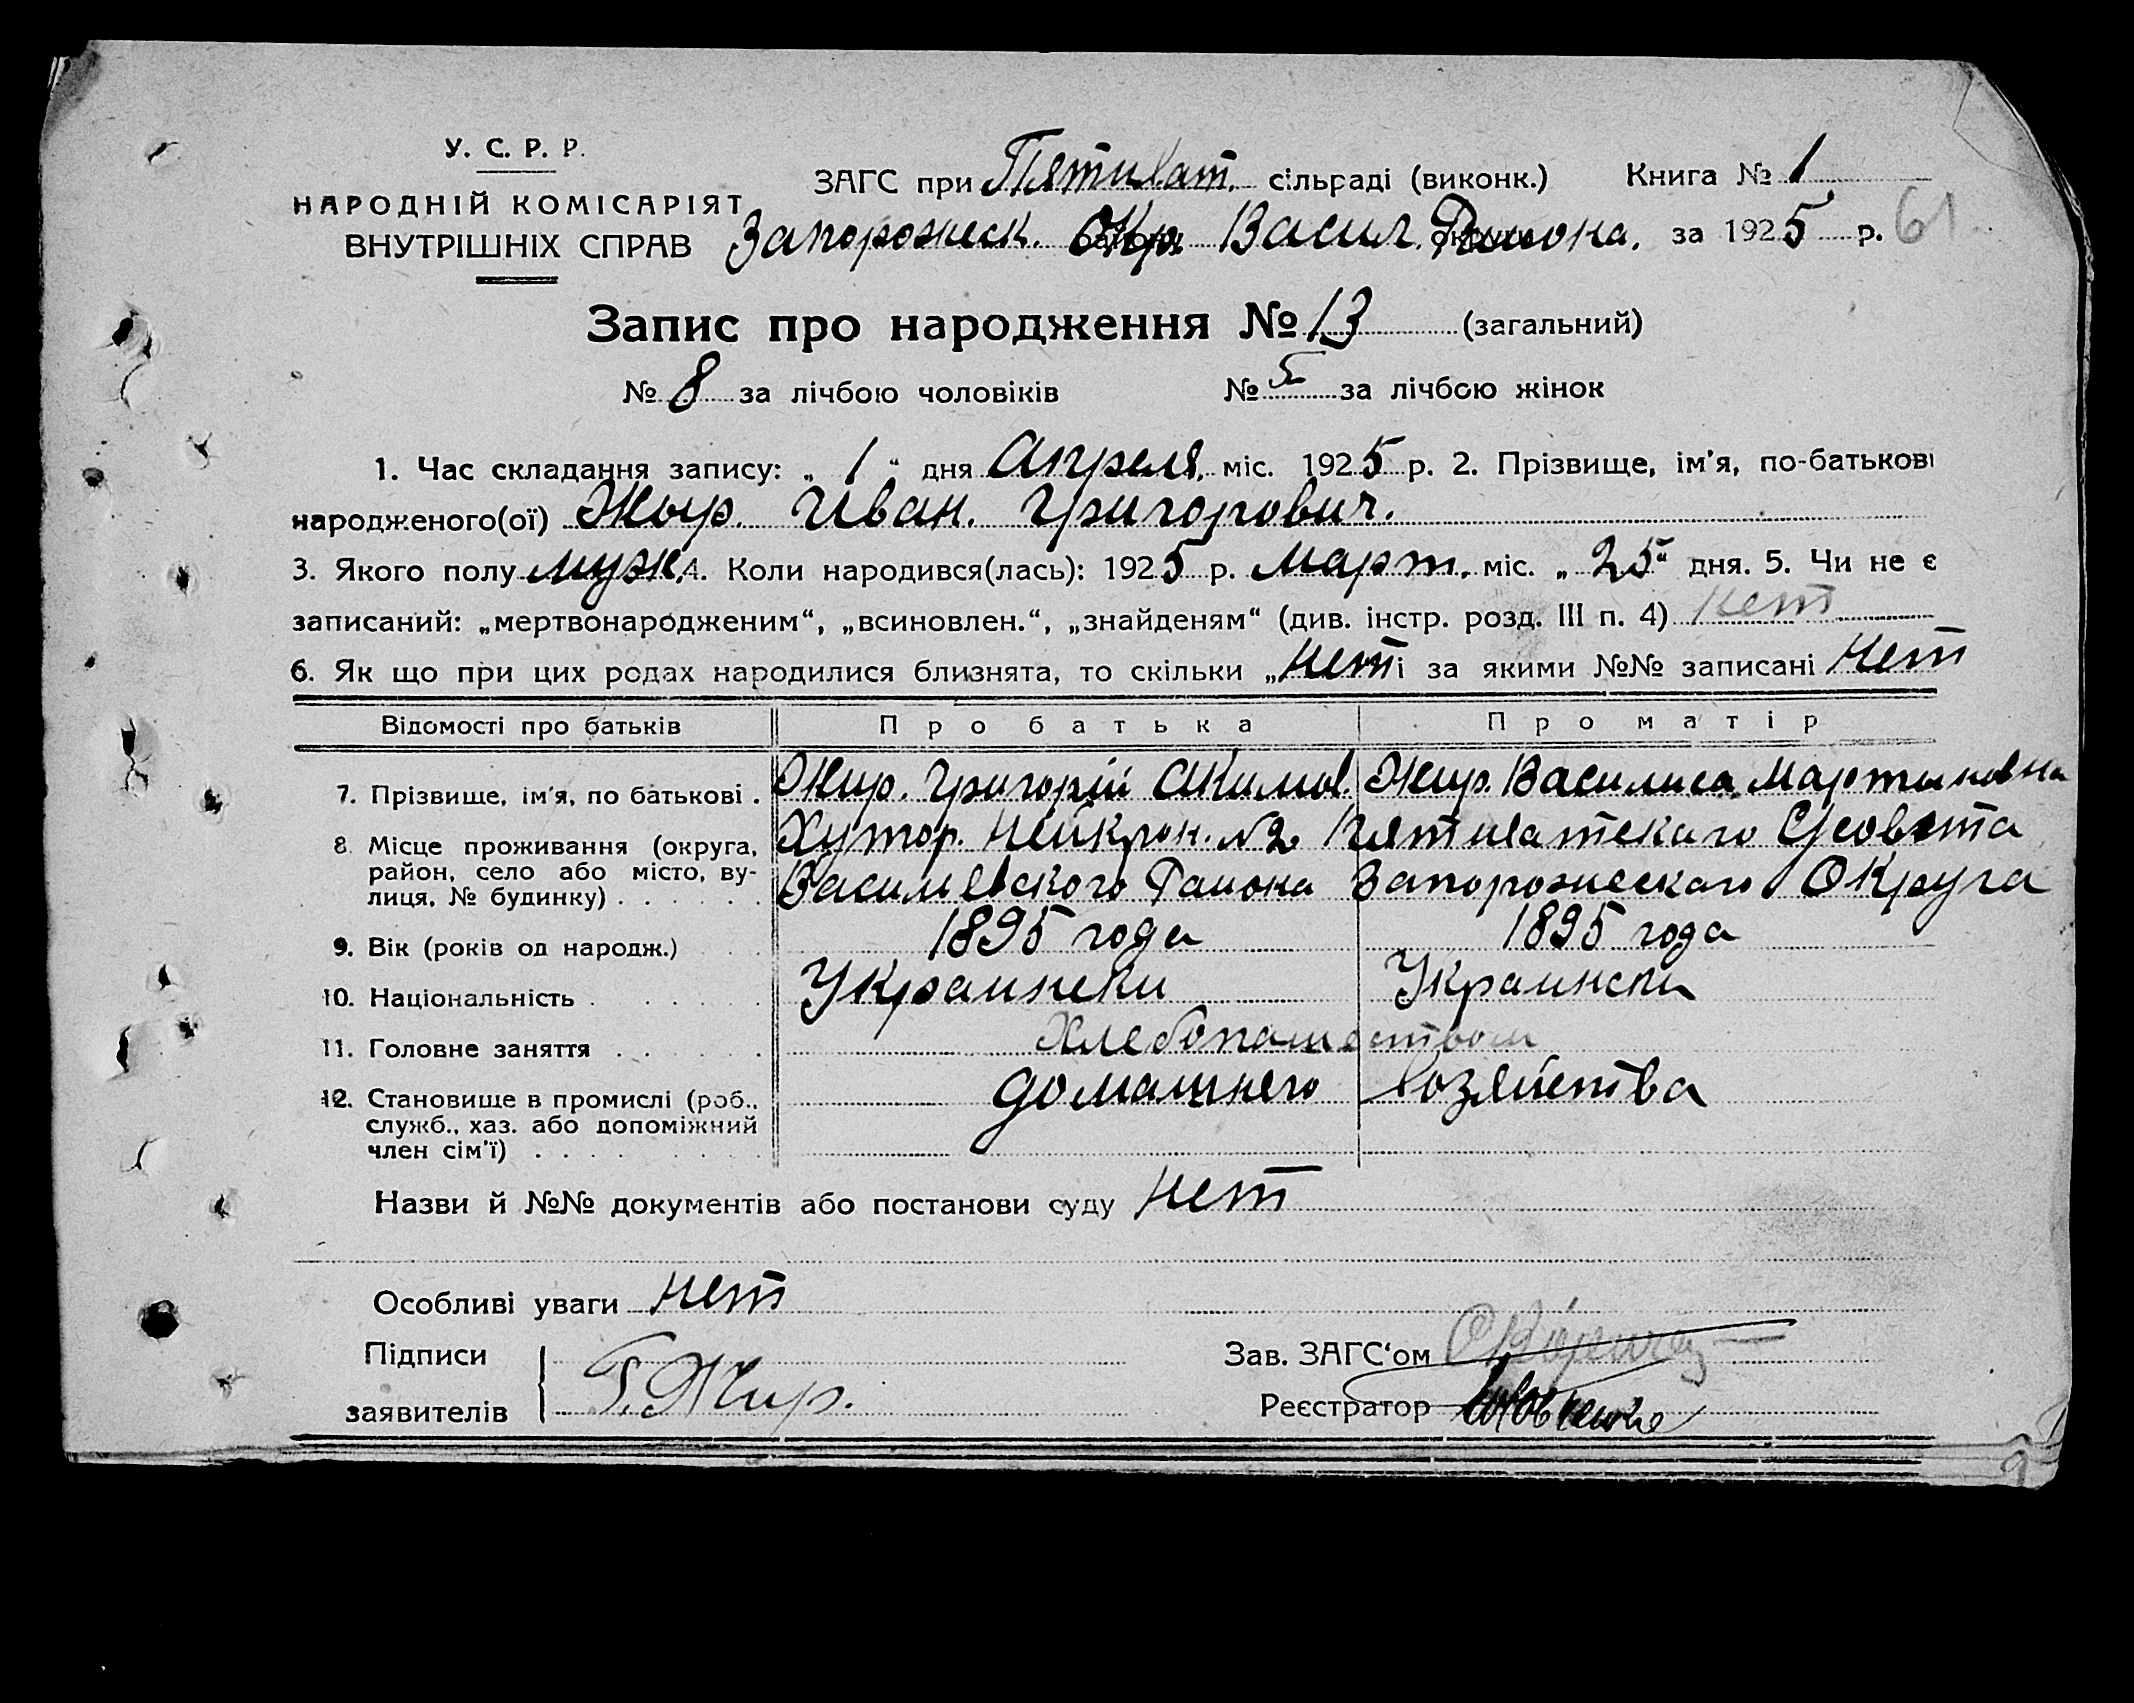 У. С. Р. Р.
НАРОДНІЙ КОМІСАРІЯТ
ВНУТРІШНІХ СПРАВ
ЗАГС при Пятихат. сільраді (виконк.) Книга № 1
Запорожеск. Окр. Васил. Района, за 1925 р. 61
Запис про народження № 13 (загальний)
№ 8 за лічбою чоловіків № 5 за лічбою жінок
1. Час складання запису: „ 1 “ дня Апреля, міс. 1925 р. 2. Прізвище, ім'я, по-батькові
народженого(ої) Жыр. Иван. Григорович.
3. Якого полу муж. 4. Коли народився(лась): 1925 р. Март. міс. „ 25 “ дня. 5. Чи не є
записаний: „мертвонародженим“, „всиновлен.“, „знайденям“ (див. інстр. розд. III п. 4) нет
6. Як що при цих родах народилися близнята, то скільки „ нет і за якими №№ записані нет
Відомості про батьків Про батька Про матір
7. Прізвище, ім'я, по батькові . Жир. Григорій Акимов. Жир. Василиса Мартиновна
8. Місце проживання (округа, Хутор. Нейкрон. №2 Пятихатскаго С/совета
район, село або місто, ву-
лиця, № будинку) . . . . . . Васильевского Района Запорожескаго Округа
9. Вік (років од народж.) 1895 года 1895 года
10. Національність . . . . . Украински Украински
11. Головне заняття . . . . . Хлебопашеством
12. Становище в промислі (роб., домашнего хозяйства
служб., хаз. або допоміжний
член сім'ї) . . . . . . . .
Назви й №№ документів або постанови суду нет
Особливі уваги нет
Підписи
заявителів Г. Жир.
Зав. ЗАГС'ом
Реєстратор
9